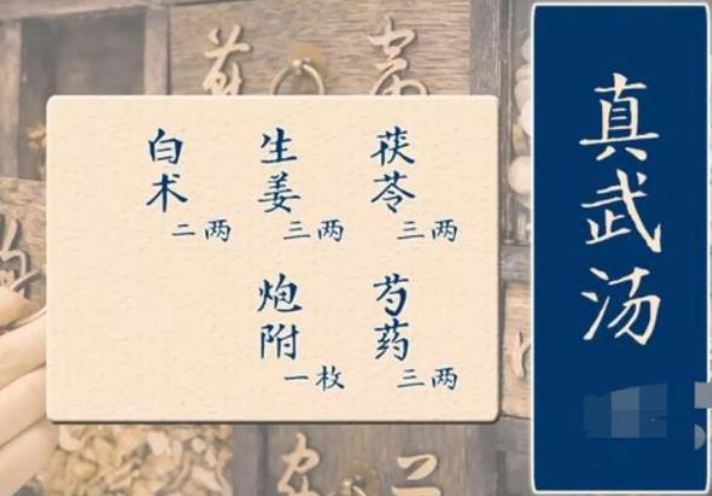 真武汤
茯苓
三两
芍药
三两
生姜
三两
炮附
一枚
白术
二两